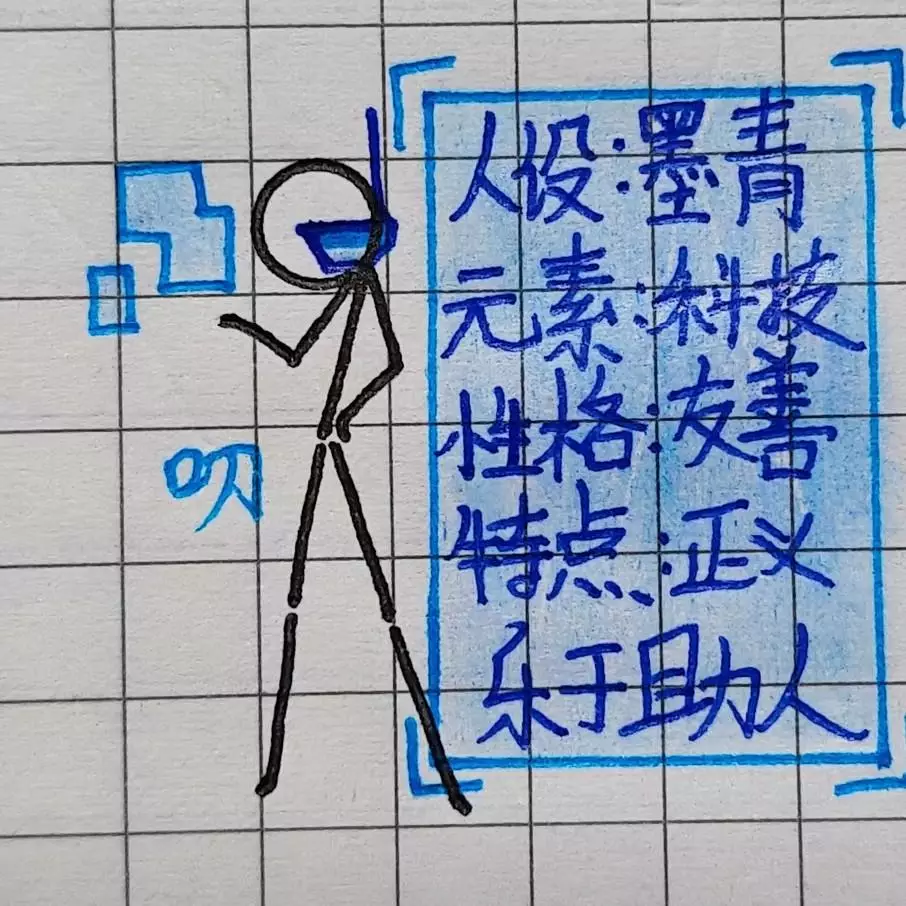 人设:墨青
元素:科技
性格:友善
特点:正义
乐于助人
叹